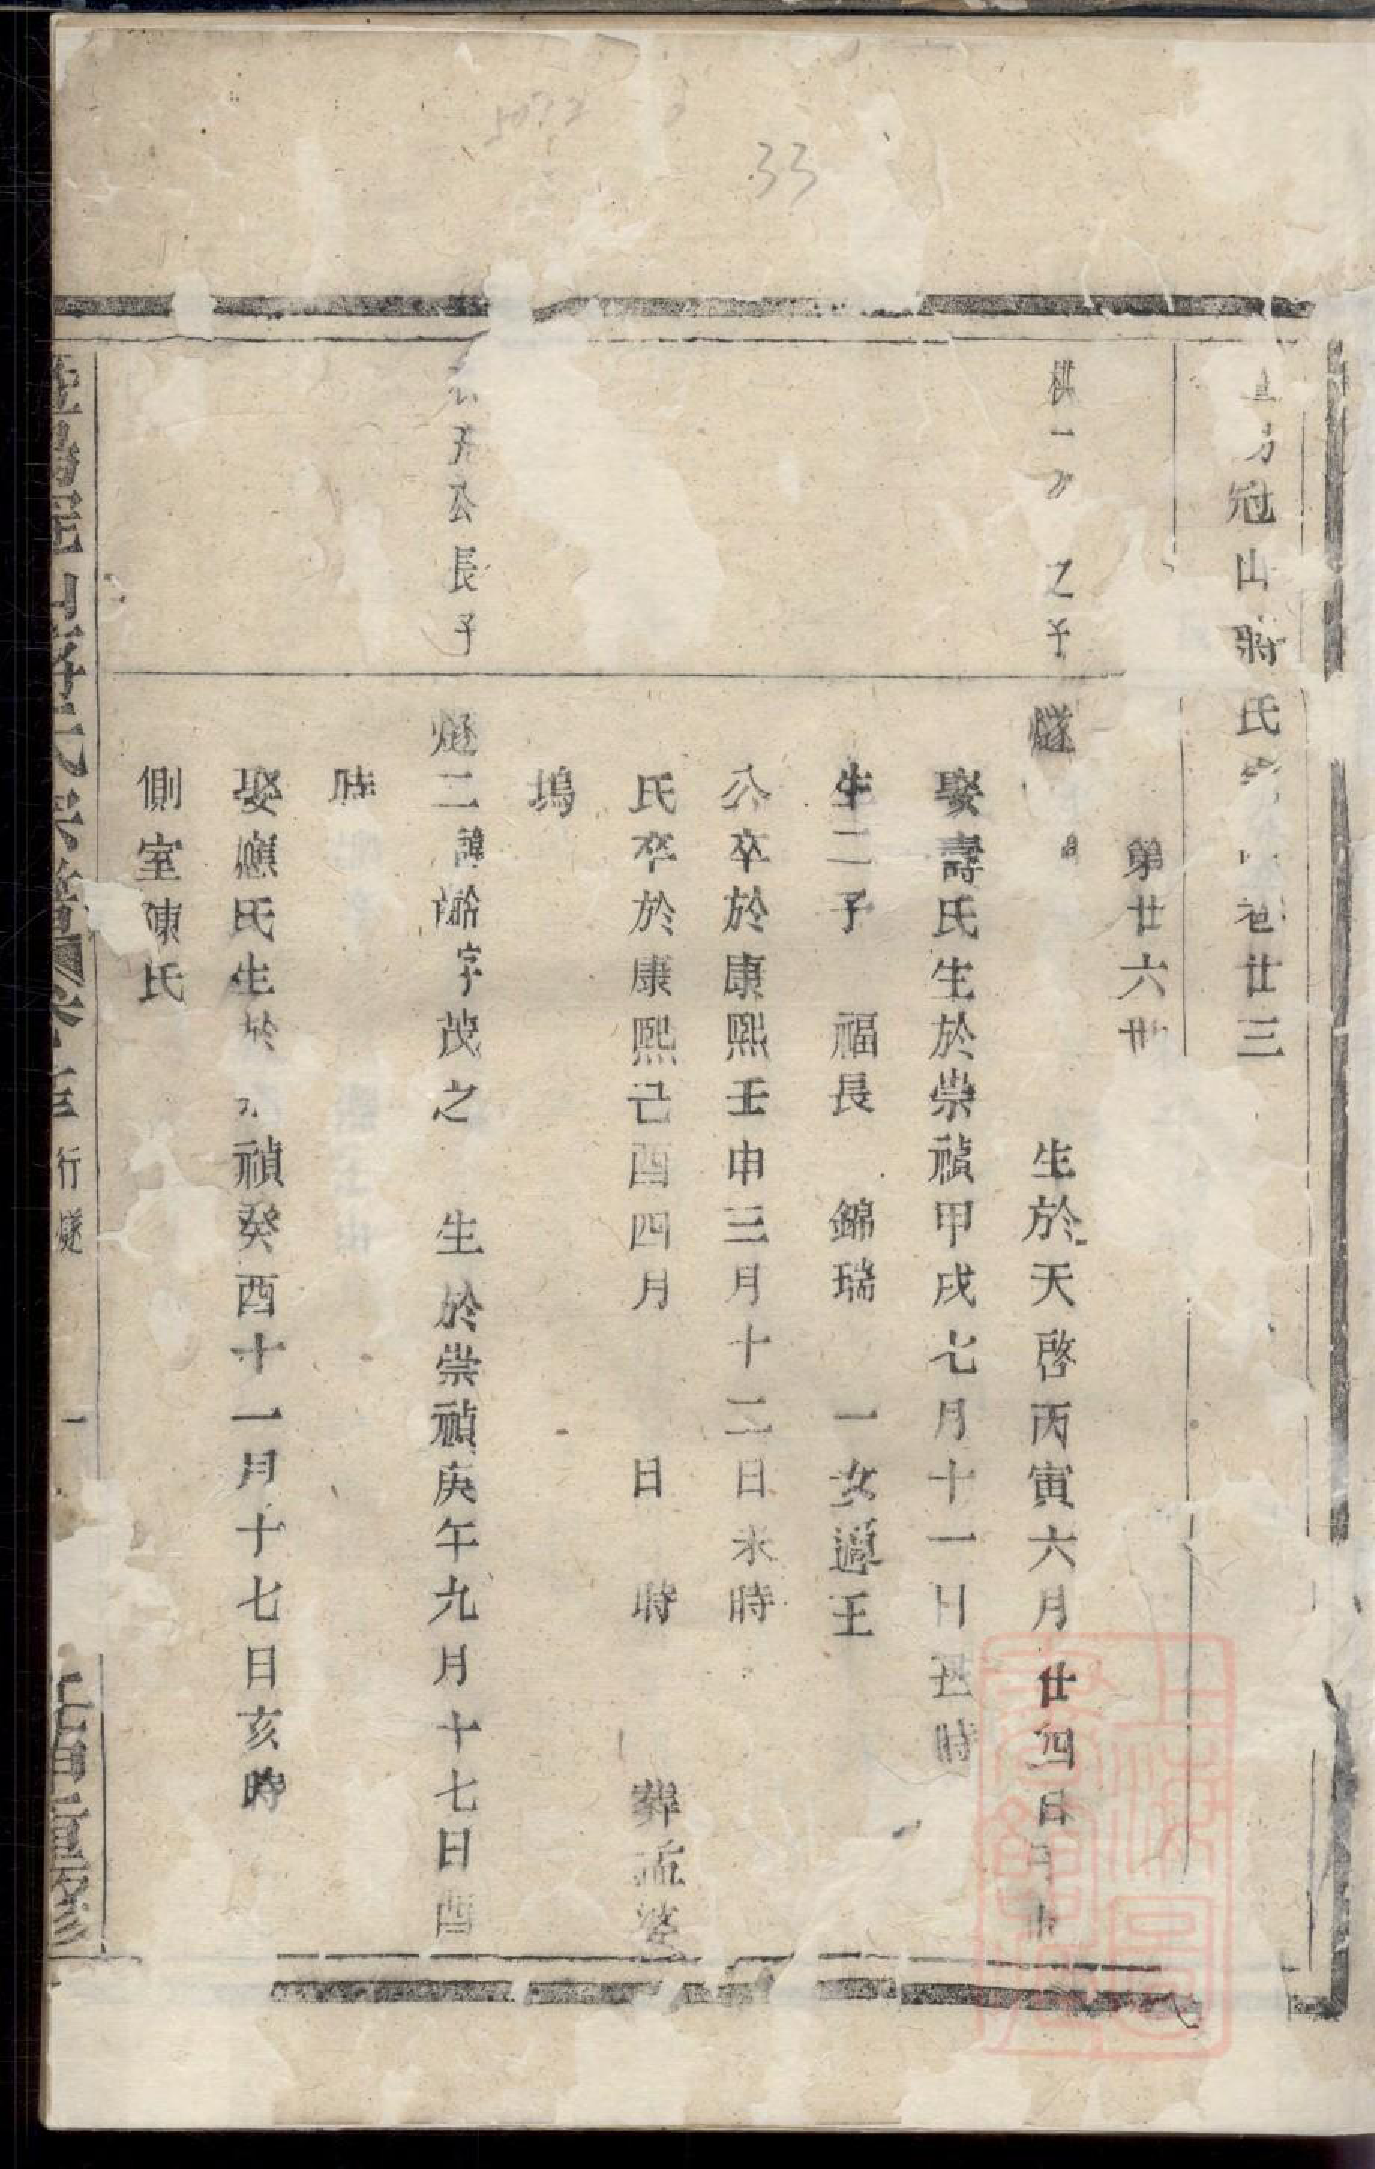 33
冠山蔣氏 卷廿三
第廿六世
棋一 之子
燧 生於天啓丙寅六月廿四日
娶壽氏生於崇禎甲戌七月十一日丑時
生二子 福長 錦瑞 一女適王
公卒於康熙壬申三月十二日未時
氏卒於康熙己酉四月 日 時 葬孟婆
塢
公長子
燧二諱 字茂之 生於崇禎庚午九月十七日酉
時
娶應氏生於 禎癸酉十一月十七日亥時
側室陳氏
山蔣氏宗譜 行燧 一